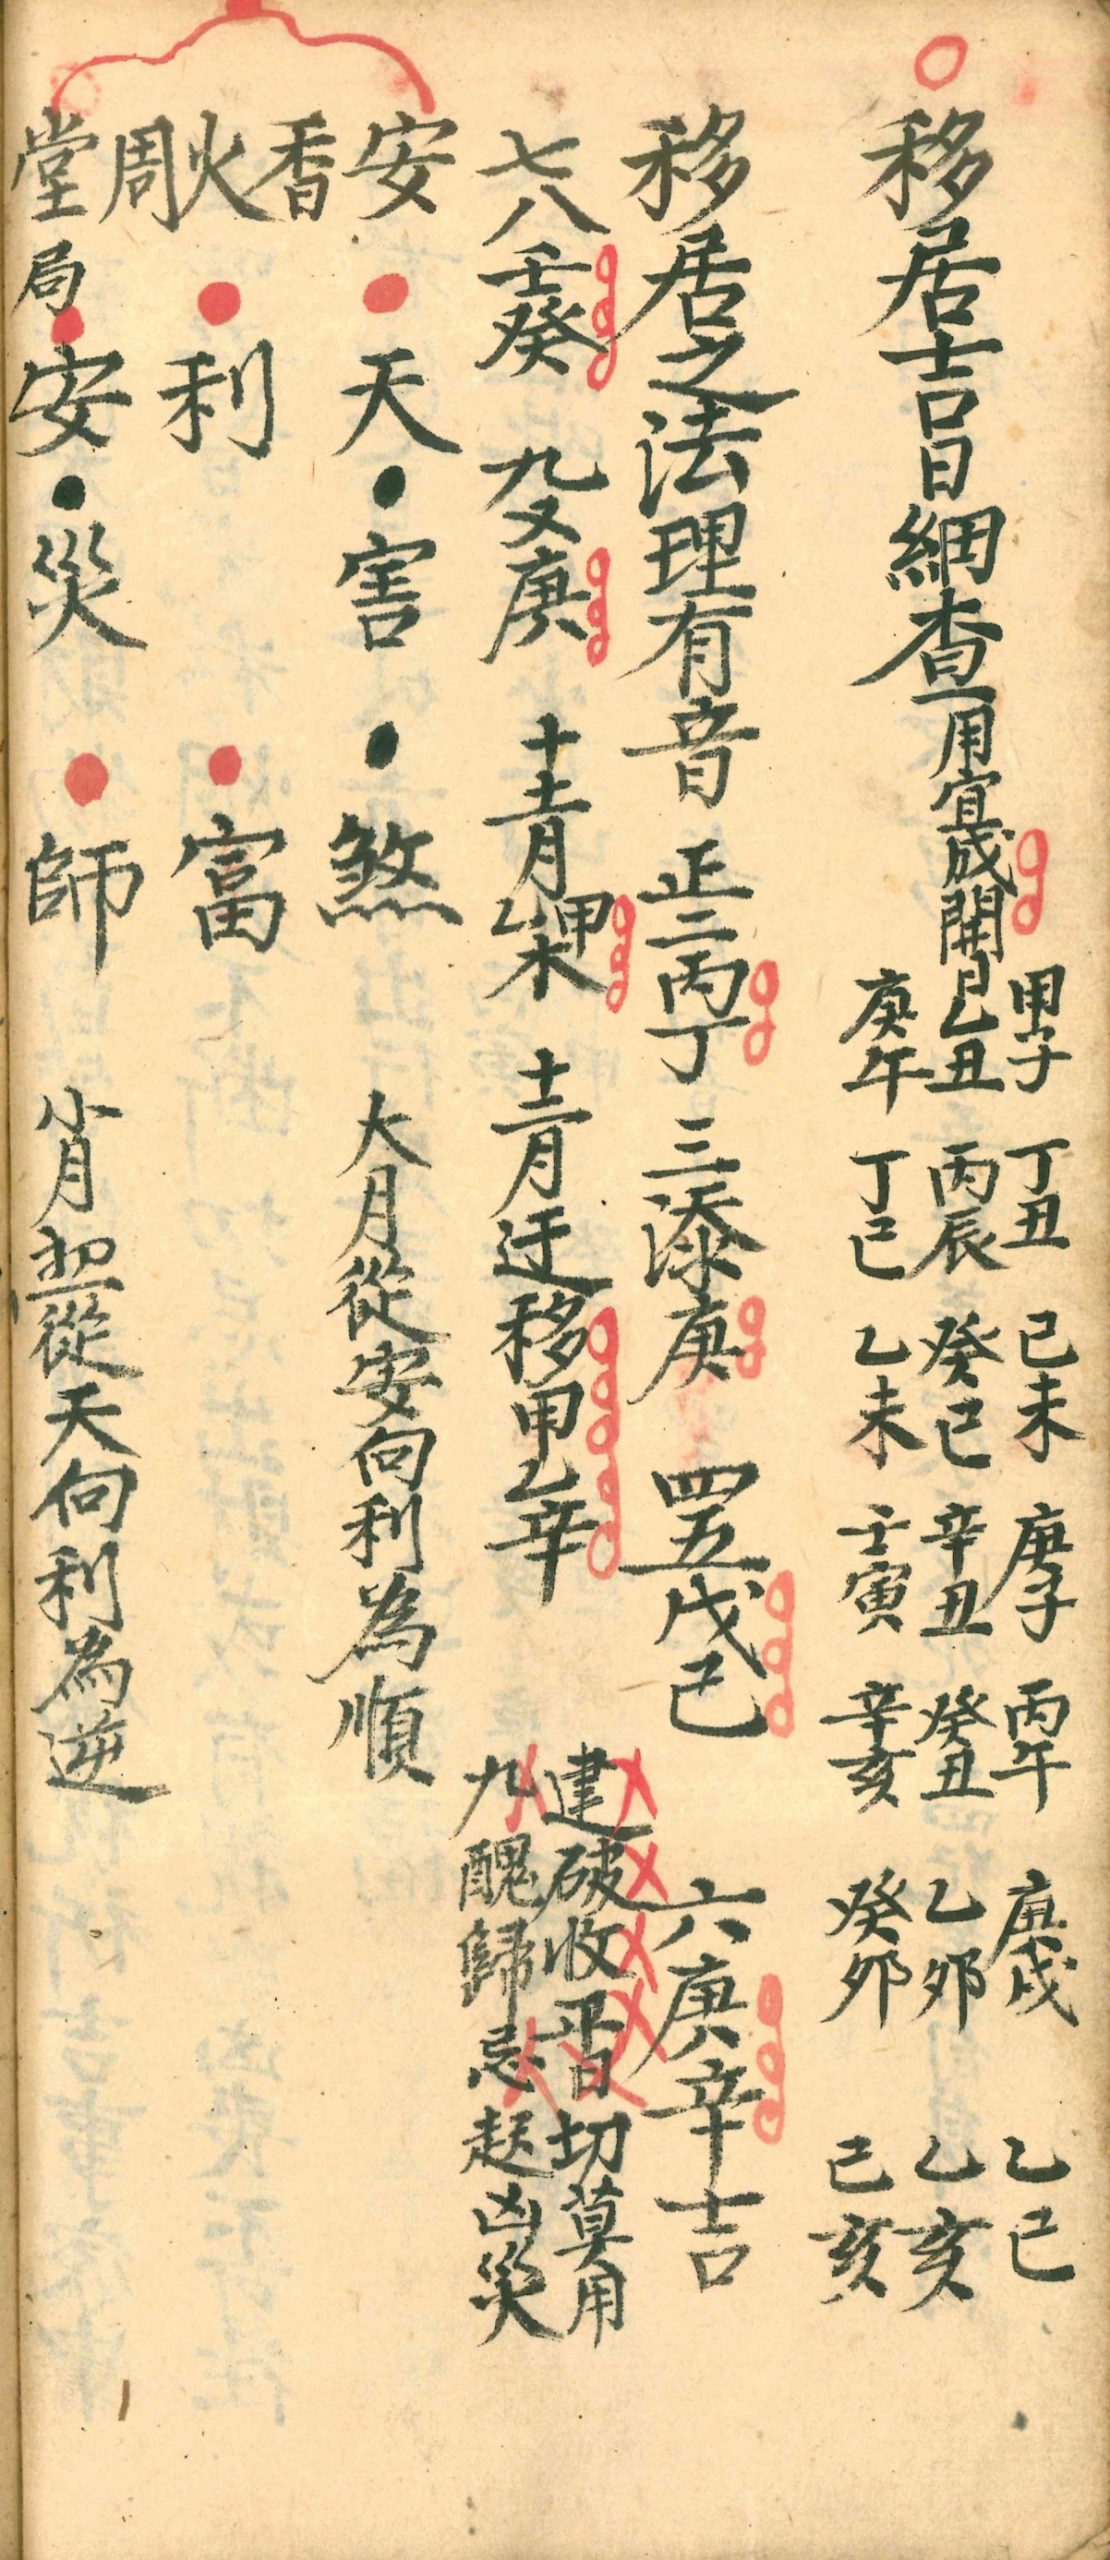 移居吉日綱查用宜成開日
甲子 丁丑 己未 庚子 丙午 庚戌 乙巳
乙丑 丙辰 癸巳 辛丑 癸丑 乙卯 乙亥
庚午 丁巳 乙未 壬寅 辛亥 癸卯 己亥
移居之法理有音 正二丙丁 三添庚 四五戊己 六庚辛吉
七八壬癸 九又庚 十十一月甲乙木 十二月迁移甲乙辛
建破收平日切莫用
九醜歸忌起凶災
安香火周堂局
天 害 煞 大月從安向利為順
利 富
安 災 師 小月從天向利為逆